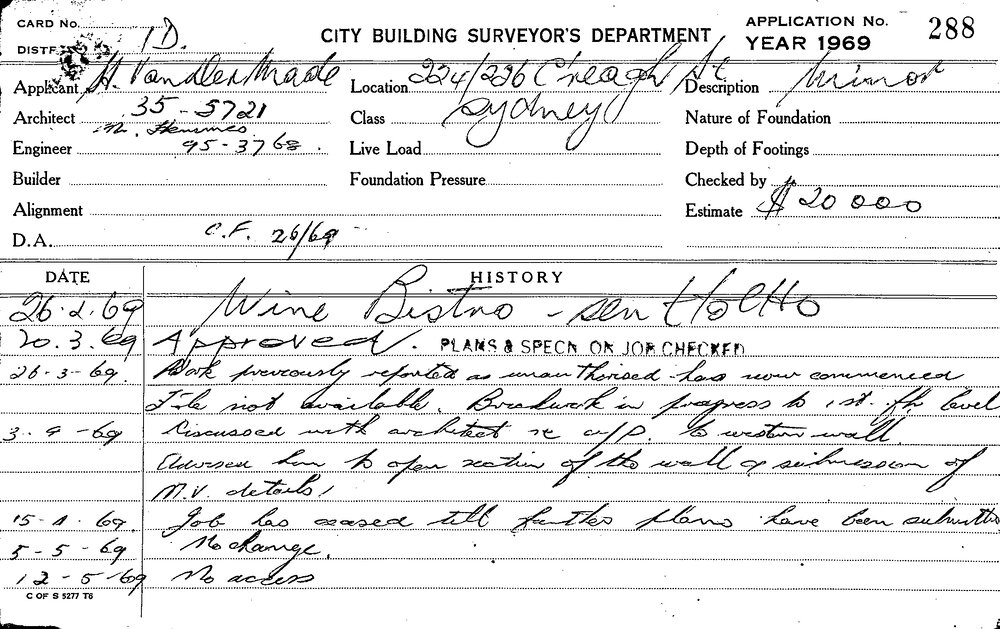 CARD No.
DISTR 1D.
CITY BUILDING SURVEYOR'S DEPARTMENT
APPLICATION No. 288
YEAR 1969
Applicant H. Van Der Made
Location 224/226 Creagh St
Description Minor
Architect 35-5721
Class Sydney
Nature of Foundation
M. Hemmes
Engineer 95-3768.
Live Load
Depth of Footings
Builder
Foundation Pressure
Checked by
Alignment
Estimate $20000
D.A. C.F. 26/69
DATE HISTORY
26.2.69 Wine Bistro -
20.3.69 Approved. PLANS & SPECN ON JOB CHECKED
26-3-69. Work previously reported as unauthorised has now commenced
File not available. Brickwork in progress to 1st. flr level
3. -69 Discussed with architect re to western wall.
Advised him to open section of the wall & submission of
M.V. details,
15-4.69. Job has ceased till further plans have been submitted
5-5-69 No change.
12-5-69 No access
C OF S 5277 T6